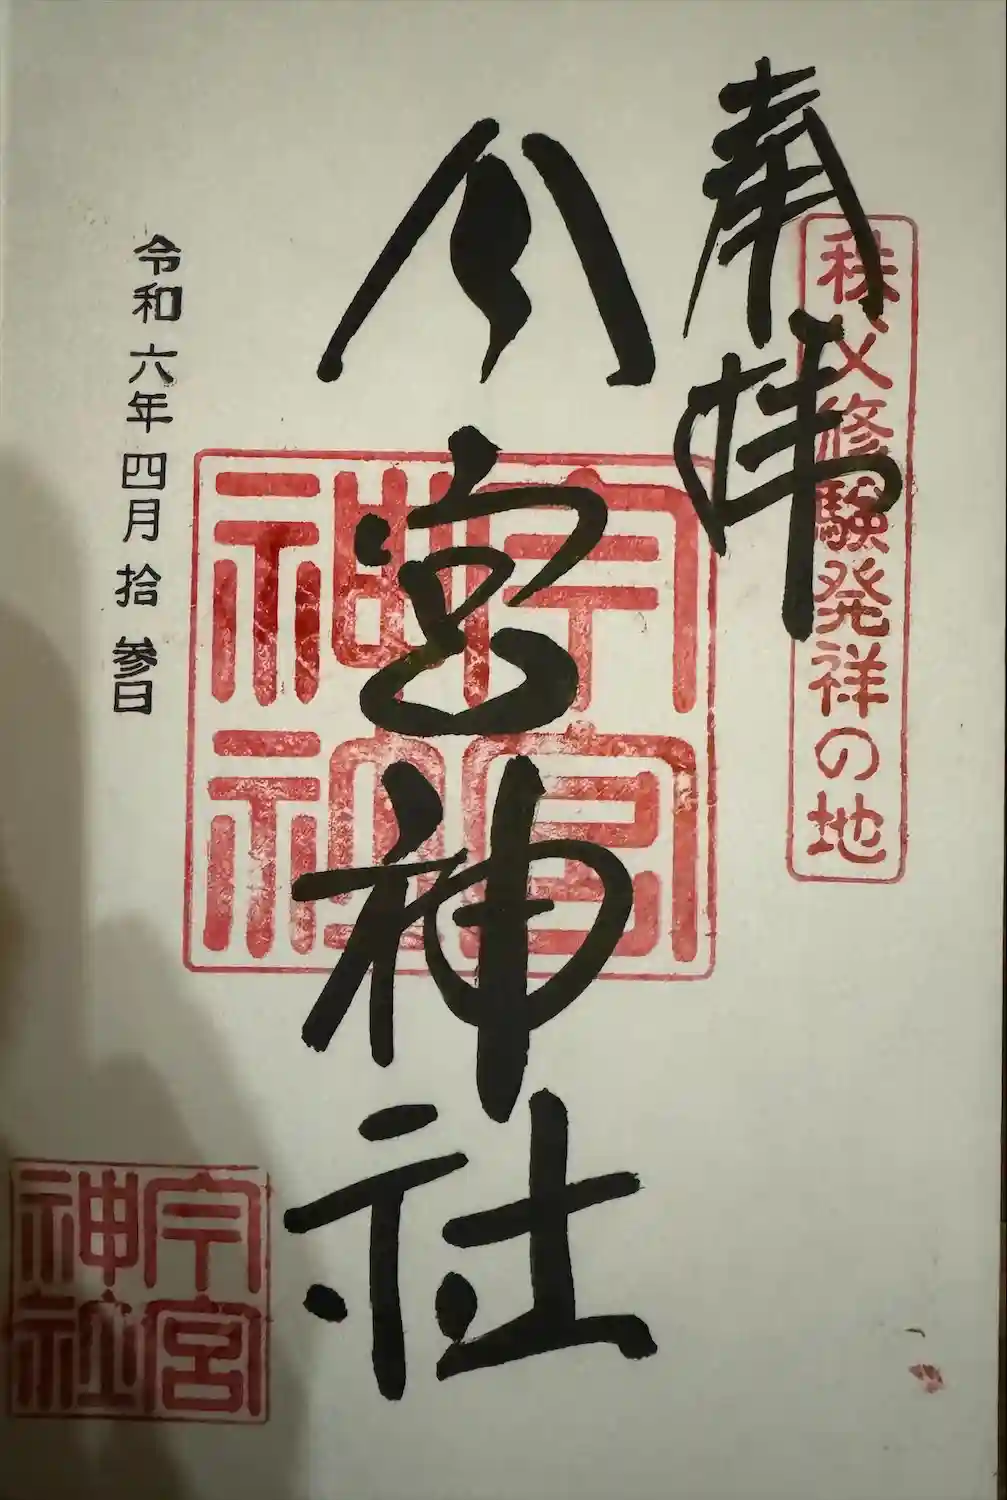 奉拝
秩父修験発祥の地
今宮神社
今宮
神社
令和六年四月拾参日
今宮
神社